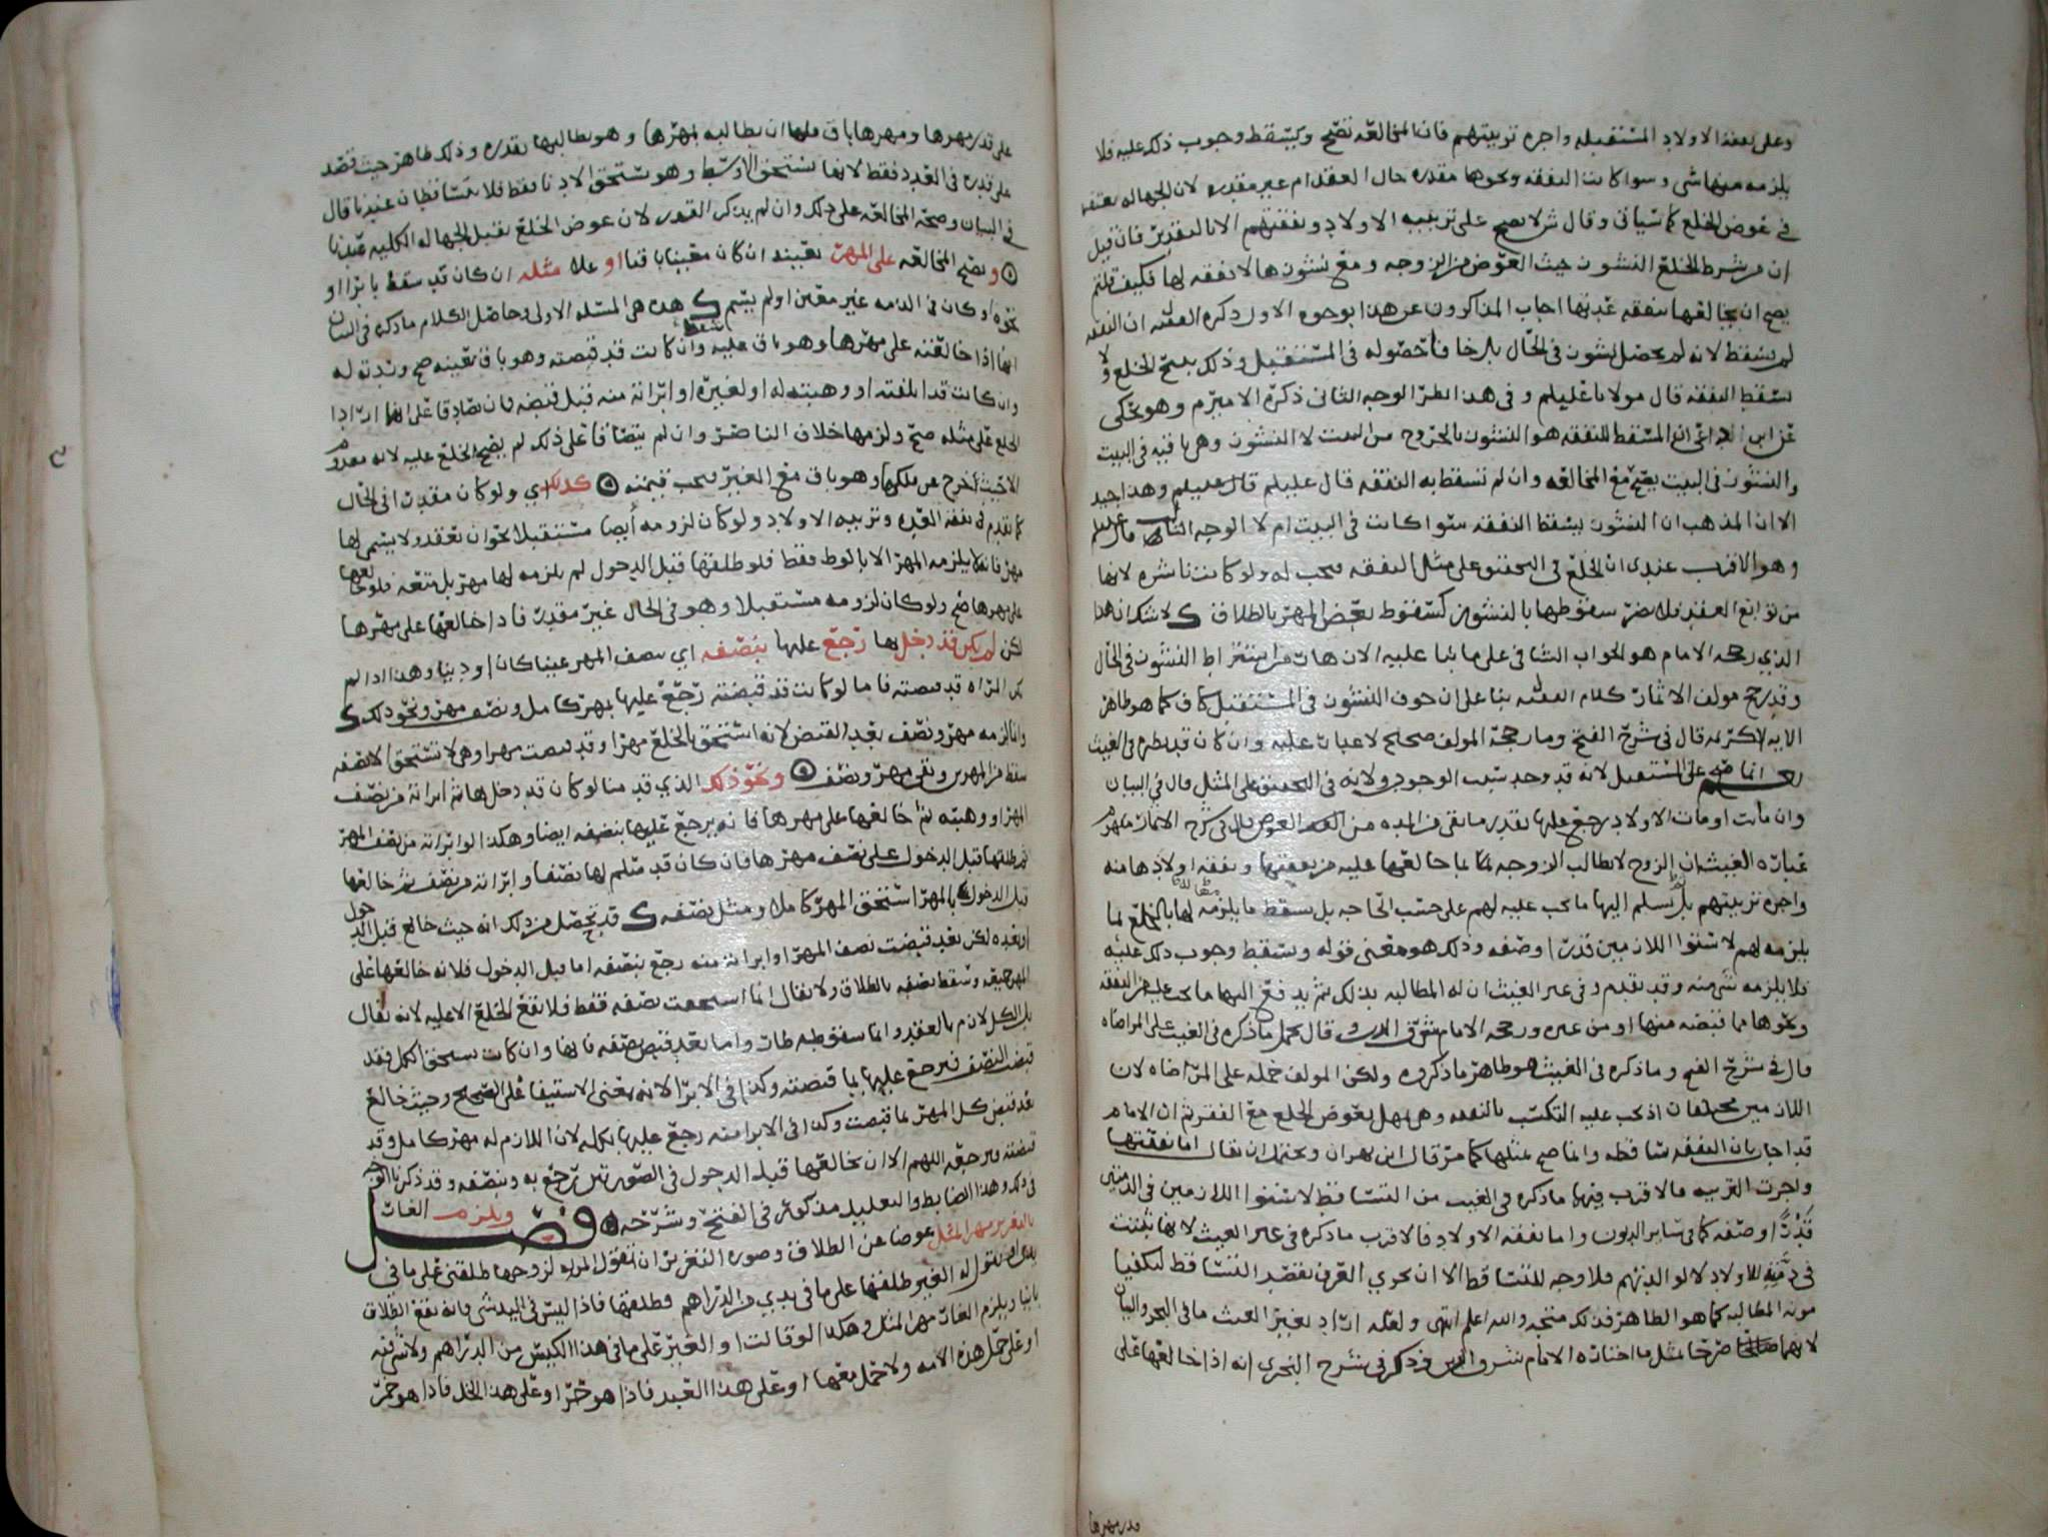 وعلى نفقة الاولاد المستقبله واجره تربيتهم فان المخالعه تصح ويسقط وجوب ذلك عليه فلا
يلزمه منها شي وسوا كانت النفقه ونحوها مقدره حال العقد ام غير مقدره لان الجهاله تغتفر
في عوض الخلع كما سياتي وقال ش لا يصح على تربيه الاولاد ونفقتهم الا بالتقدير فان قيل
ان من شرط الخلع النشوز حيث العوض من الزوجه ومع نشوزها لا نفقه لها فكيف قلتم
يصح ان يخالعها بنفقه عدتها اجاب المذاكرون عن هذا بوجوه الاول ذكره الفقيه ان النفقه
لم تسقط لانه لم يحصل نشوز في الحال بل رخا فاحضوله في المستقبل وذلك يصحح الخلع ولا
يسقط النفقه قال مولانا عليلم وفي هذا نظر الوجه الثاني ذكره الامير م وهو محكى
عن ابي ان المسقط للنفقه هو النشوز بالخروج من البيت لا النشوز وهي باقيه في البيت
والنشوز في البيت يصح مع المخالعه وان لم تسقط به النفقه قال عليلم وهذا جيد
الا ان المذهب ان النشوز يسقط النفقه سوا كانت في البيت ام لا الوجه الثالث قال عليلم
وهو الاقرب عندي ان الخلع في التحقيق على مثل النفقه فيجب له ولو كانت ناشزه لانها
من توابع العقد فلا يضر سقوطها بالنشوز كسقوط بعض المهر بالطلاق ك لا شك ان هذا
الذي رجحه الامام هو الجواب الشافي على ما بنا عليه الان هات من اشتراط النشوز في الحال
وقد رجح مولف الاثمار كلام الفقيه بنا على ان خوف النشوز في المستقبل كاف كما هو ظاهر
الايه الكريمه قال في شرح الفتح وما رجحه المولف صحيح لا غبار عليه وان كان قد نظره في الغيث
انما صح على المستقبل لانه قد وجد سبب الوجوب ولانه في التحقيق على المثل قال في البيان
وان مات او مات الاولاد رجع عليها بقدر ما بقي من المده من العوض قال في شرح الاثمار ما لفظه
عباره الغيث ان الزوج لا يطالب الزوجه بما خالعها عليه من نفقتها ونفقه اولادها منه
واجره تربيتهم بل يسلم اليها ما يجب عليه لهم على حسب الحاجه بل يسقط ما يلزمه لها بالخلع بما
يلزمه لهم لاستوا اللازمين قدرا وصفه وذلك هو معنى قوله ويسقط وجوب ذلك عليه
فلا يلزمه شي منه وقد تقدم وفي غير الغيث ان له المطالبه بذلك ثم يدفع اليها ما يجب عليه من النفقه
ونحوها مما قبضه منها او من غيره ورجحه الامام شرف الدين قال يحمل ما ذكره في الغيث على المراضاه
قال في شرح الفتح وما ذكره في الغيث هو ظاهر ما ذكروه ولكن المولف حمله على المراضاه لان
اللازمين مختلفان اذ يجب عليه التكسب بالنفقه وهي تمهل بعوض الخلع مع الفقر ثم ان الامام
قد اجاب بان النفقه ساقطه وانما صح بمثلها كما مر قال ابن بهران ويحتمل ان يقال اما نفقتها
واجرت التربيه فالاقرب فيها ما ذكره في الغيث من التساقط لاستوا اللازمين في الذمتين
قدرا وصفه كما في ساير الديون واما نفقه الاولاد فالاقرب ما ذكره في غير الغيث لانها ثبتت
في ذمته للاولاد لا لوالدتهم فلا وجه للتساقط الا ان يجري العرف بقصد التساقط لتكفيا
مونه المطالبه كما هو الظاهر فذلك متجه والله اعلم انتهى ولعله اراد بغير الغيث ما في البحر والبيان
لانهما صرحا بمثل ما اختاره الامام شرف الدين وذكر في شرح البحري انه اذا خالعها على
قدر مهرها
على قدر مهرها ومهرها باق فلها ان يطالبه بمهرها وهو يطالبها بقدره وذلك ظاهر حيث قصد
على قدره في العدد فقط لانها تستحق الاوسط وهو يستحق الادنا فقط فلا يتساقطان عندنا قال
في البيان وصحه المخالعه على ذلك وان لم يذكر القدر لان عوض الخلع يقبل الجهاله الكليه عندنا
وتصح المخالعه على المهر بعينه ان كان معينا باقيا او على مثله ان كان قد سقط بابرا او
نحوه او كان في الذمه غير معين او لم يسم ك هذه هي المسئله الاولى وحاصل الكلام ما ذكره في البيان
انها اذا خالعته على مهرها وهو باق عليه سقط وان كانت قد قبضته وهو باق بعينه صح وردته له
وان كانت قد اتلفته او وهبته له او لغيره او ابراته منه قبل قبضه فان تصادقا على انها ارادا
الخلع على مثله صح ولزمها خلاف الناصر وان لم يتصادقا على ذلك لم يصح الخلع عليه لانه معدوم
الا حيث اخرج عن ملكها وهو باق مع الغير فيجب قيمته كذلك اي ولو كان مقدرا في الحال
كما تقدم في نفقه العده وتربيه الاولاد ولو كان لزومه ايضا مستقبلا نحو ان تعقد ولا يسمى لها
مهر فانه لا يلزمه المهر الا بالوطء فقط فلو طلقها قبل الدخول لم يلزمه لها مهر بل متعه فلو خالعها
على مهرها صح ولو كان لزومه مستقبلا وهو في الحال غير مقدر فاذا خالعها على مهرها
لكن لم يكن قد دخل بها رجع عليها بنصفه اي بنصف المهر عينا كان او دينا وهذا اذا لم
تكن المراه قد قبضته فاما لو كانت قد قبضته رجع عليها بمهر كامل ونصف مهر ونحو ذلك ك
وانما لزمه مهر ونصف بعد القبض لانه استحق بالخلع مهرا وقد قبضت مهرا وهي لا تستحق الا نصفه
سقط من المهرين وبقي مهر ونصف ونحو ذلك الذي قدمنا لو كان قد دخل بها ثم ابراته من نصف
المهر او وهبته ثم خالعها على مهرها فانه يرجع عليها بنصفه ايضا وهكذا لو ابراته من نصف المهر
ثم طلقها قبل الدخول على نصف مهرها فان كان قد سلم لها نصفا وابراته من نصف ثم خالعها
قبل الدخول بالمهر استحق المهر كاملا ومثل نصفه ك قد تحصل من ذلك انه حيث خالع قبل الدخول
او بعده لكن بعد قبضت نصف المهر او ابراته منه رجع بنصفه اما قبل الدخول فلانه خالعها على
المهر جميعه وسقط نصفه بالطلاق ولا يقال انما استحقت نصفه فقط فلا يقع الخلع الا عليه لانه يقال
بل الكل لازم بالعقد وانما سقوطه طار واما بعد قبض نصفه فانها وان كانت تستحق الكل فقد
قبضت النصف فيرجع عليها بما قبضته وكذا في الابرا لانه بمعنى الاستيفا على الصحيح وحيث خالع
بعد قبض كل المهر بما قبضت وكذا في الابرا منه رجع عليها بكماله لان اللازم له مهر كامل وقد
قبضته فيرجع به اللهم الا ان يخالعها قبل الدخول في الصورتين رجع به وبنصفه وقد ذكرنا الوجه
في ذلك وهذا الضابط والتعليل مذكور في الفتح وشرحه فصل ويلزم الغار
بالتغرير مهر المثل عوضا عن الطلاق وصوره التغرير ان تقول المراه لزوجها طلقني على ما في
يدي او يقول له الغير طلقها على ما في يدي من الدراهم فطلقها فاذا ليس في اليد شي فانه يقع الطلاق
باينا ويلزم الغار مهر المثل وهكذا لو قالت او الغير على ما في هذا الكيس من الدراهم ولا شي فيه
او على حمل هذه الامه ولا حمل معها او على هذا العبد فاذا هو حرا او على هذا الخل فاذا هو خمر